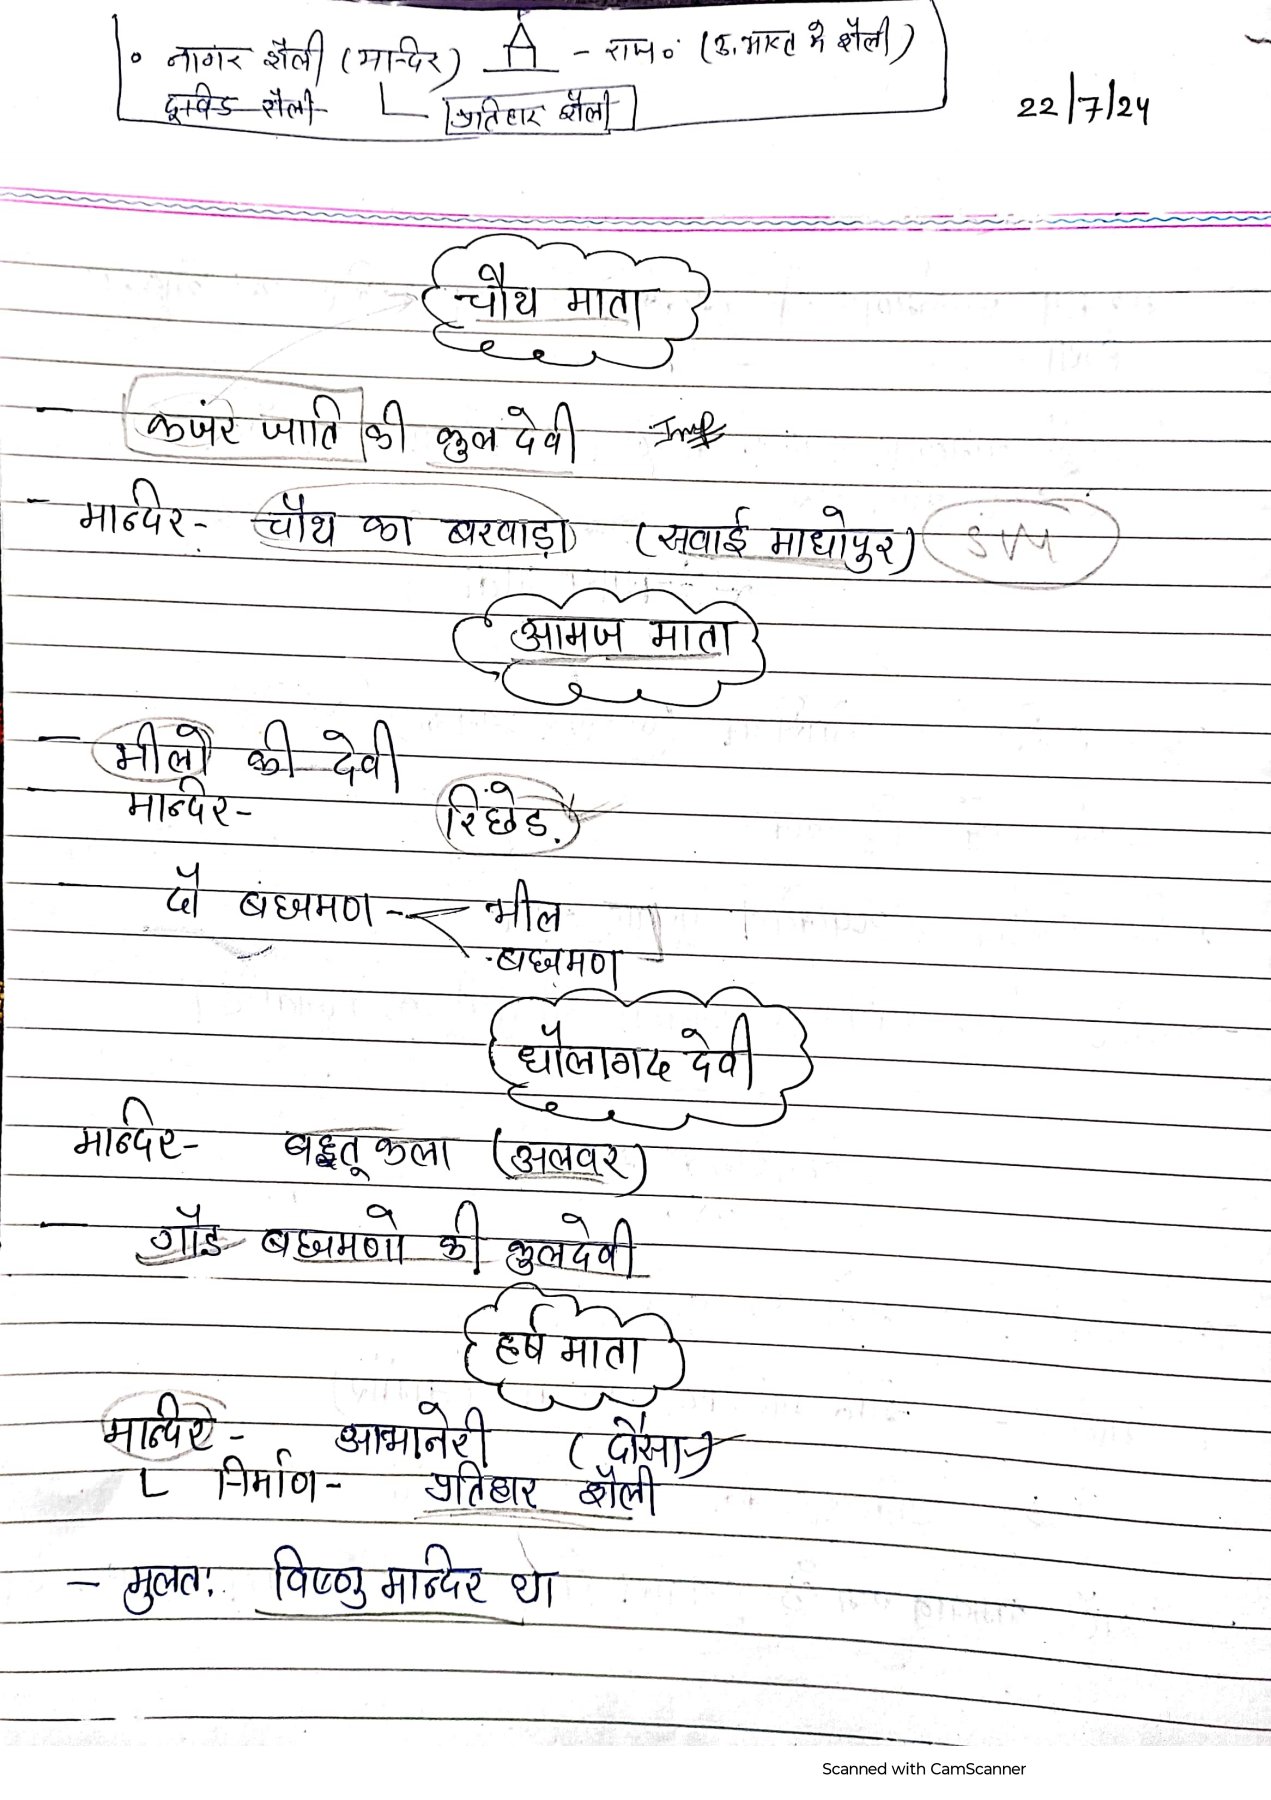 • नागर शैली (मान्दिर) - राज॰ (उ.भारत मे शैली)
द्रविड शैली प्रतिहार शैली
22/7/24
चौथ माता
- कजंर जाति की कुल देवी Imp
- मान्दिर- चौथ का बरवाड़ा (सवाई माधोपुर) SVM
आमज माता
- भीलो की देवी
- मान्दिर- रिंछेड
- दो - भील
धौलागढ देवी
मान्दिर- बहतू कला (अलवर)
- गौड की कुलदेवी
हर्ष माता
मान्दिर - आभानेरी (दौसा)
निर्माण- प्रतिहार शैली
- मुलतः विष्णु मान्दिर था
Scanned with CamScanner